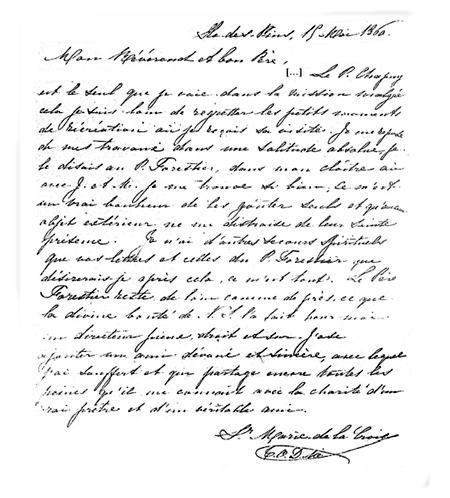 Ile des Pins, 15 Mai 1860.
Mon Révérend et bon Père,
[...] Le P. Chapuy
est le seul que je voie dans la mission malgré
cela je suis loin de regretter les petits moments
de récréation où je reçois sa visite. Je me repose
de mes travaux dans une solitude absolue, je
le disais au P. Forestier, dans mon cloître ici
avec J. et M. je me trouve si bien, ce m'est
un vrai bonheur de les goûter seuls et qu'aucun
objet extérieur ne me distraise de leur sainte
présence. Je n'ai d'autres secours spirituels
que vos lettres et celles du P. Forestier que
désirerais-je après cela, ce m'est tout. Le Père
Forestier reste de loin comme de près, ce que
la divine bonté de N. S. l'a fait pour moi
un directeur pieux, droit et sûr j'ose
ajouter un ami dévoué et sincère, avec lequel
j'ai souffert et qui partage encore toutes les
peines qu'il me connaît avec la charité d'un
vrai prêtre et d'un véritable ami.
Sr Marie de la Croix